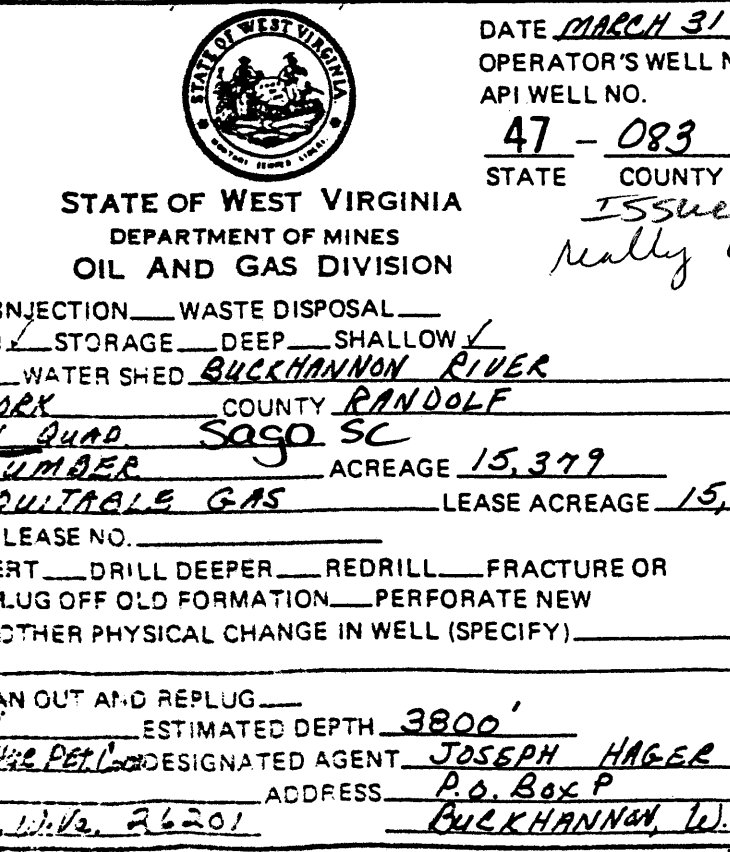 STATE OF WEST VIRGINIA
MONTANI SEMPER LIBERI
DATE MARCH 31
OPERATOR'S WELL N
API WELL NO.
47 - 083
STATE COUNTY
Issue
really
STATE OF WEST VIRGINIA
DEPARTMENT OF MINES
OIL AND GAS DIVISION
INJECTION___ WASTE DISPOSAL___
✓ STORAGE___ DEEP___ SHALLOW ✓
WATER SHED BUCKHANNON RIVER
ORK COUNTY RANDOLF
QUAD. Sago SC
UMBER ACREAGE 15,379
QUITABLE GAS LEASE ACREAGE 15,
LEASE NO.
ERT___ DRILL DEEPER___ REDRILL___ FRACTURE OR
LUG OFF OLD FORMATION___ PERFORATE NEW
OTHER PHYSICAL CHANGE IN WELL (SPECIFY)
AN OUT AND REPLUG___
ESTIMATED DEPTH 3800'
Pet. DESIGNATED AGENT JOSEPH HAGER
ADDRESS P.O. Box P
W.Va. 26201 BUCKHANNON, W.